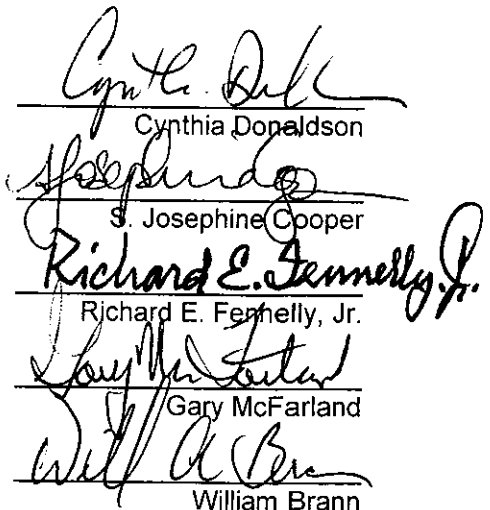 Cynthia Donaldson
S. Josephine Cooper
Richard E. Fennelly, Jr.
Richard E. Fennelly, Jr.
Gary McFarland
Gary McFarland
Will A
William Brann